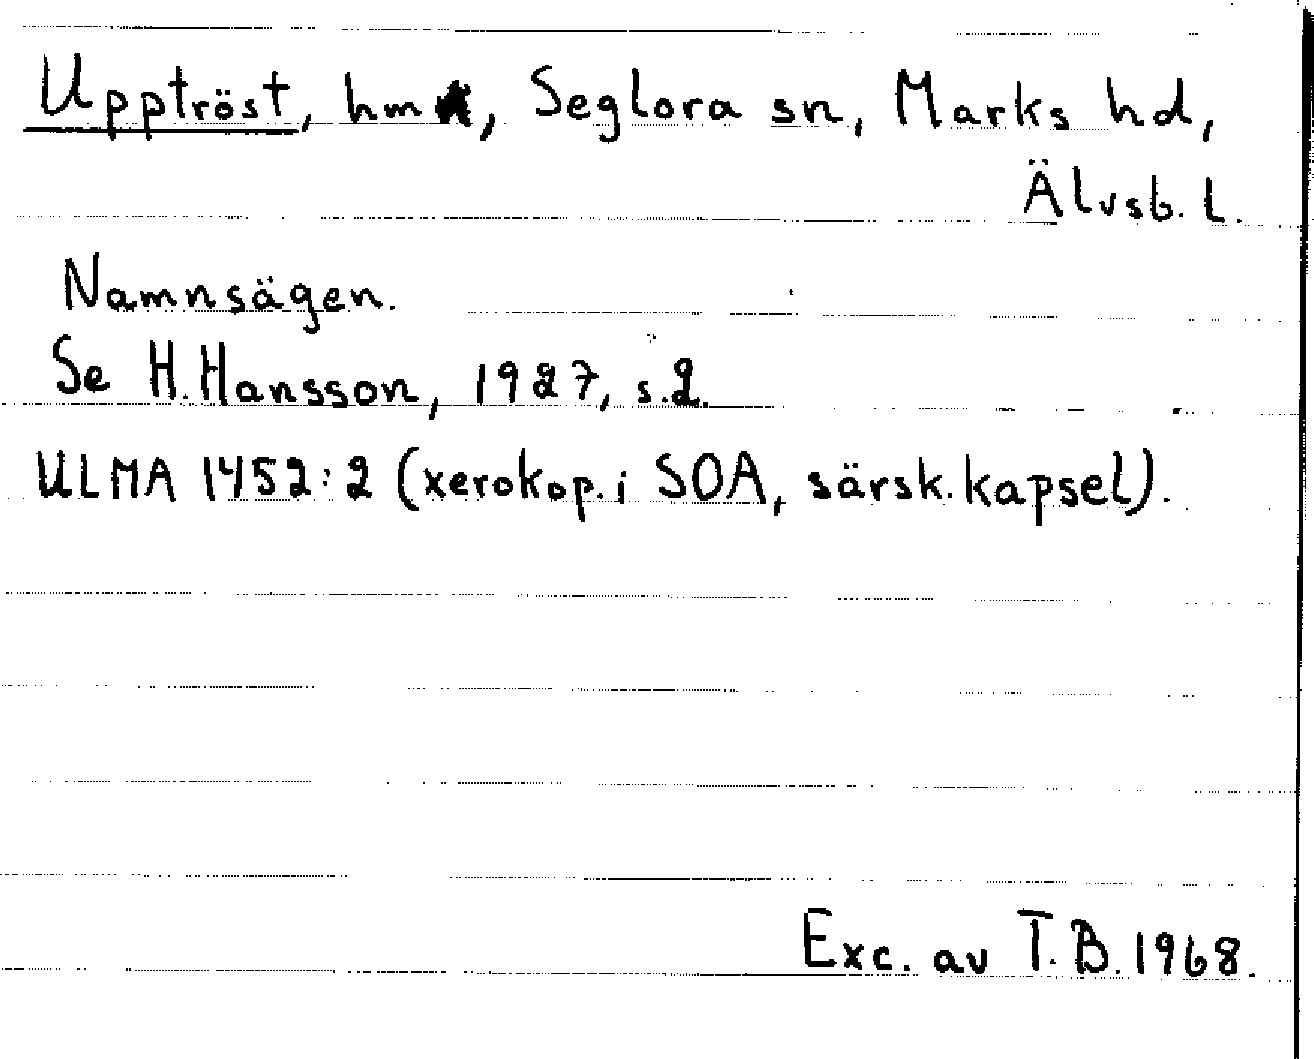 Upptröst, hmn, Seglora sn, Marks hd,
Älvsb. l.
Namnsägen.
Se H. Hansson, 1927, s. 2.
ULMA 1452:2 (xerokop. i SOA, särsk. kapsel).
Exc. av T. B. 1968.